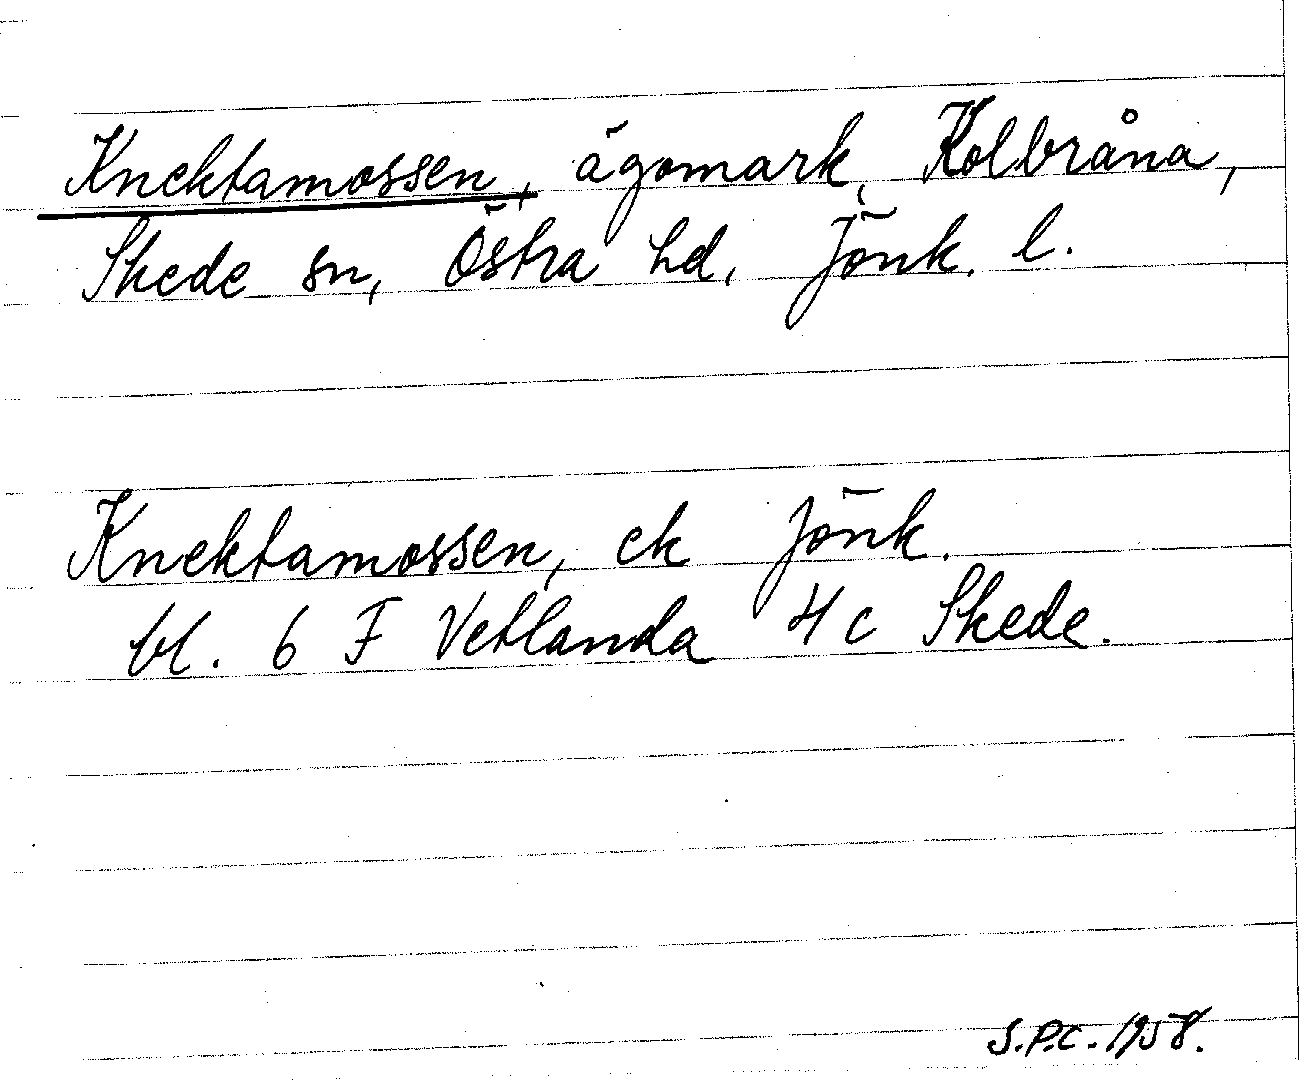 Knektamossen, ägomark, Kolbråna,
Skede sn, Östra hd, Jönk. l.
Knektamossen, ek Jönk.
bl. 6 F Vetlanda 4 c Skede.
S.P.C. 1958.